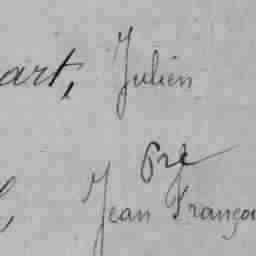 art, Julien
pre
Jean Franço